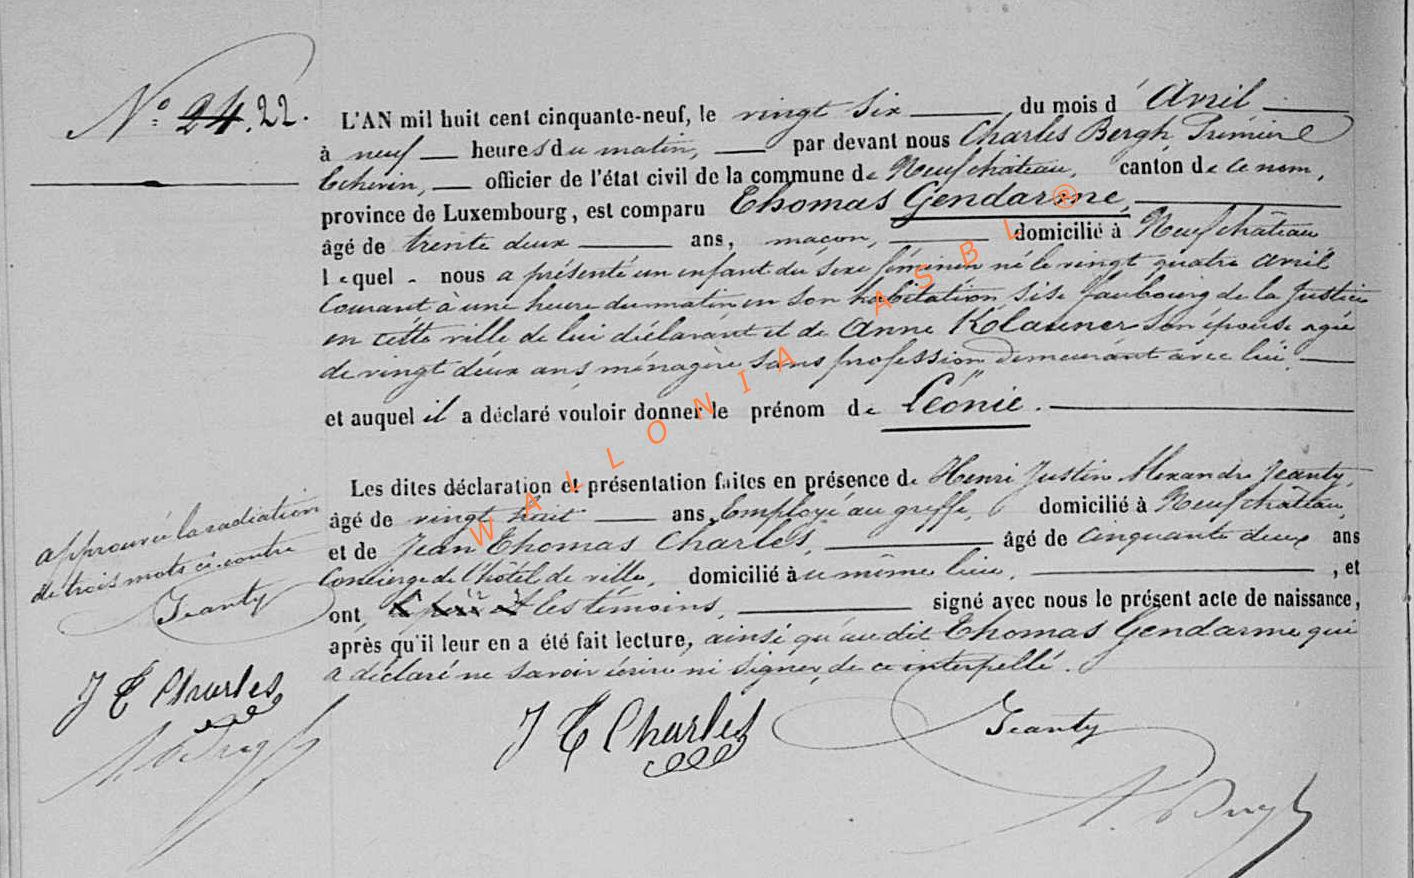 N°. 24. 22.
L'AN mil huit cent cinquante-neuf, le vingt six du mois d'Avril
à neuf heures du matin, par devant nous Charles Bergh, Premier
Echevin, officier de l'état civil de la commune de Neufchateau, canton de ce nom,
province de Luxembourg, est comparu Thomas Gendarme,
âgé de trente deux ans, maçon, domicilié à Neufchâteau
lequel nous a présenté un enfant du sexe féminin né le vingt quatre avril
courant à une heure du matin en son habitation sise faubourg de la Justice
en cette ville de lui déclarant et de Anne Klauner son épouse agée
de vingt deux ans, ménagère sans profession demeurant avec lui
et auquel il a déclaré vouloir donner le prénom de Léonie.
Les dites déclaration et présentation faites en présence de Henri Justin Alexandre Jeanty,
âgé de vingt huit ans, Employé au greffe, domicilié à Neufchâteau,
et de Jean Thomas Charles, âgé de cinquante deux ans
Concierge de l'hôtel de ville, domicilié au même lieu, , et
ont, les témoins, signé avec nous le présent acte de naissance,
après qu'il leur en a été fait lecture, ainsi qu'audit Thomas Gendarme qui
a déclaré ne savoir écrire ni signer, de ce interpellé.
approuvée la radiation
de trois mots ci-contre
Jeanty
J T Charles
J T Charles
Jeanty
WALLONIA ASBL ®